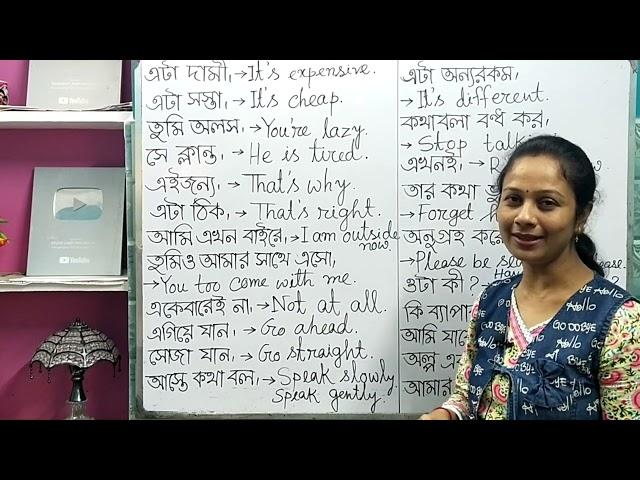 এটা দামী, →It's expensive.
এটা সস্তা, →It's cheap.
তুমি অলস, →You're lazy.
সে ক্লান্ত, → He is tired.
এইজন্য, →That's why.
এটা ঠিক, → That's right.
আমি এখন বাইরে, →I am outside now.
তুমিও আমার সাথে এসো,
→You too come with me.
একেবারেই না, →Not at all.
এগিয়ে যান, →Go ahead.
সোজা যান, → Go straight.
আস্তে কথা বল, →Speak slowly.
Speak gently.
এটা অন্যরকম,
→It's different.
কথাবলা বন্ধ কর,
→ Stop
এখনই, →
তার কথা
→Forget
অনুগ্রহ করে
→Please be
ওটা কী? →
কি
আমি
অল্প
আমার
YouTube
YouTube
Hello
GOODBYE
Hello
GOODBYE
Hello